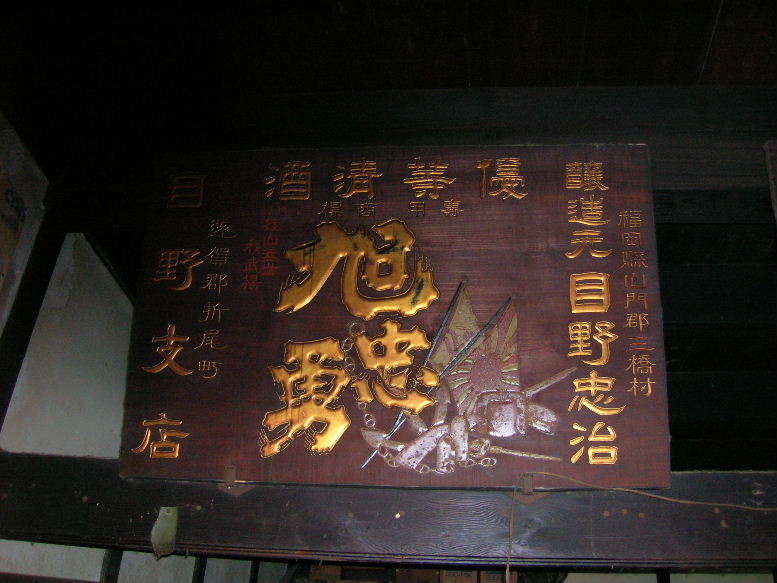 優等清酒
専用商標
旭
忠勇
福岡縣山門郡三橋村
釀造元目野忠治
遠賀郡折尾町
目野支店